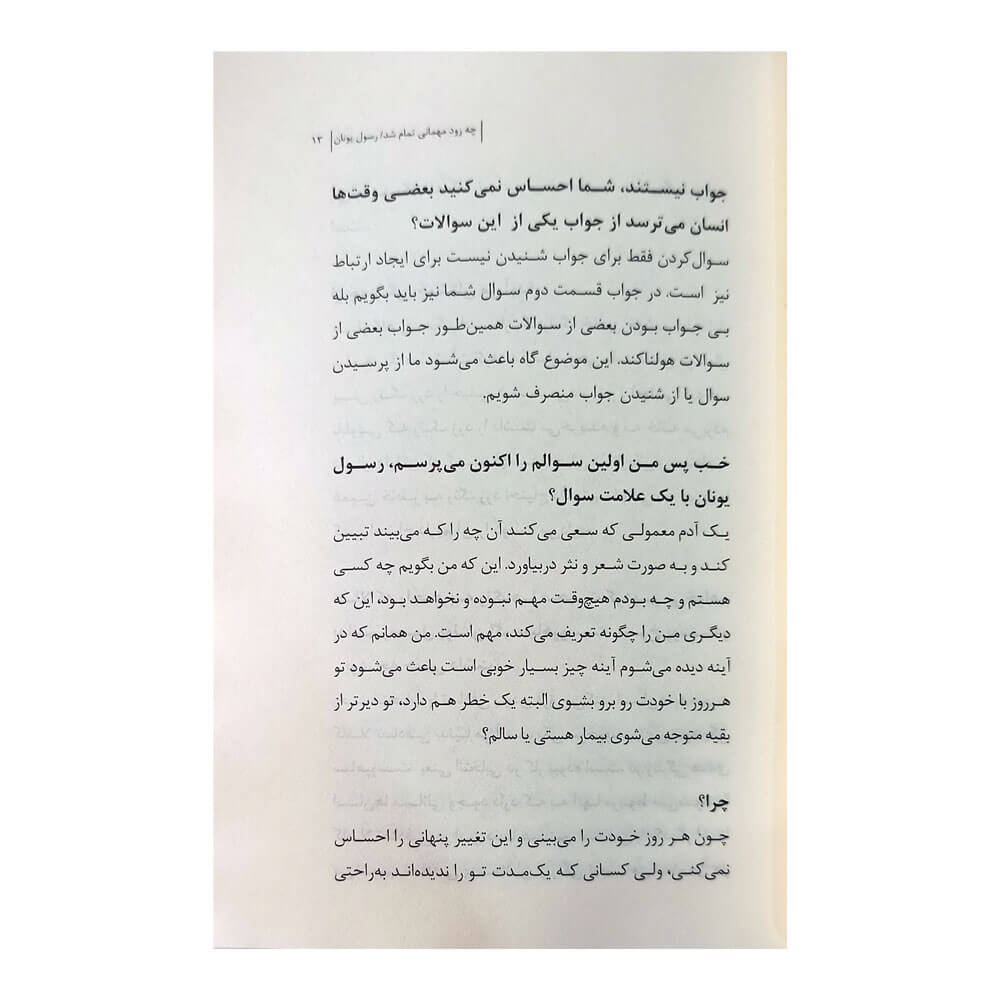 چه زود مهمانی تمام شد/ رسول یونان | ۱۳
جواب نیستند، شما احساس نمی‌کنید بعضی وقت‌ها
انسان می‌ترسد از جواب یکی از این سوالات؟
سوال‌کردن فقط برای جواب شنیدن نیست برای ایجاد ارتباط
نیز است. در جواب قسمت دوم سوال شما نیز باید بگویم بله
بی جواب بودن بعضی از سوالات همین‌طور جواب بعضی از
سوالات هولناکند. این موضوع گاه باعث می‌شود ما از پرسیدن
سوال یا از شنیدن جواب منصرف شویم.
خب پس من اولین سوالم را اکنون می‌پرسم، رسول
یونان با یک علامت سوال؟
یک آدم معمولی که سعی می‌کند آن چه را که می‌بیند تبیین
کند و به صورت شعر و نثر دربیاورد. این که من بگویم چه کسی
هستم و چه بودم هیچ‌وقت مهم نبوده و نخواهد بود، این که
دیگری من را چگونه تعریف می‌کند، مهم است. من همانم که در
آینه دیده می‌شوم آینه چیز بسیار خوبی است باعث می‌شود تو
هرروز با خودت رو برو بشوی البته یک خطر هم دارد، تو دیرتر از
بقیه متوجه می‌شوی بیمار هستی یا سالم؟
چرا؟
چون هر روز خودت را می‌بینی و این تغییر پنهانی را احساس
نمی‌کنی، ولی کسانی که یک‌مدت تو را ندیده‌اند به‌راحتی